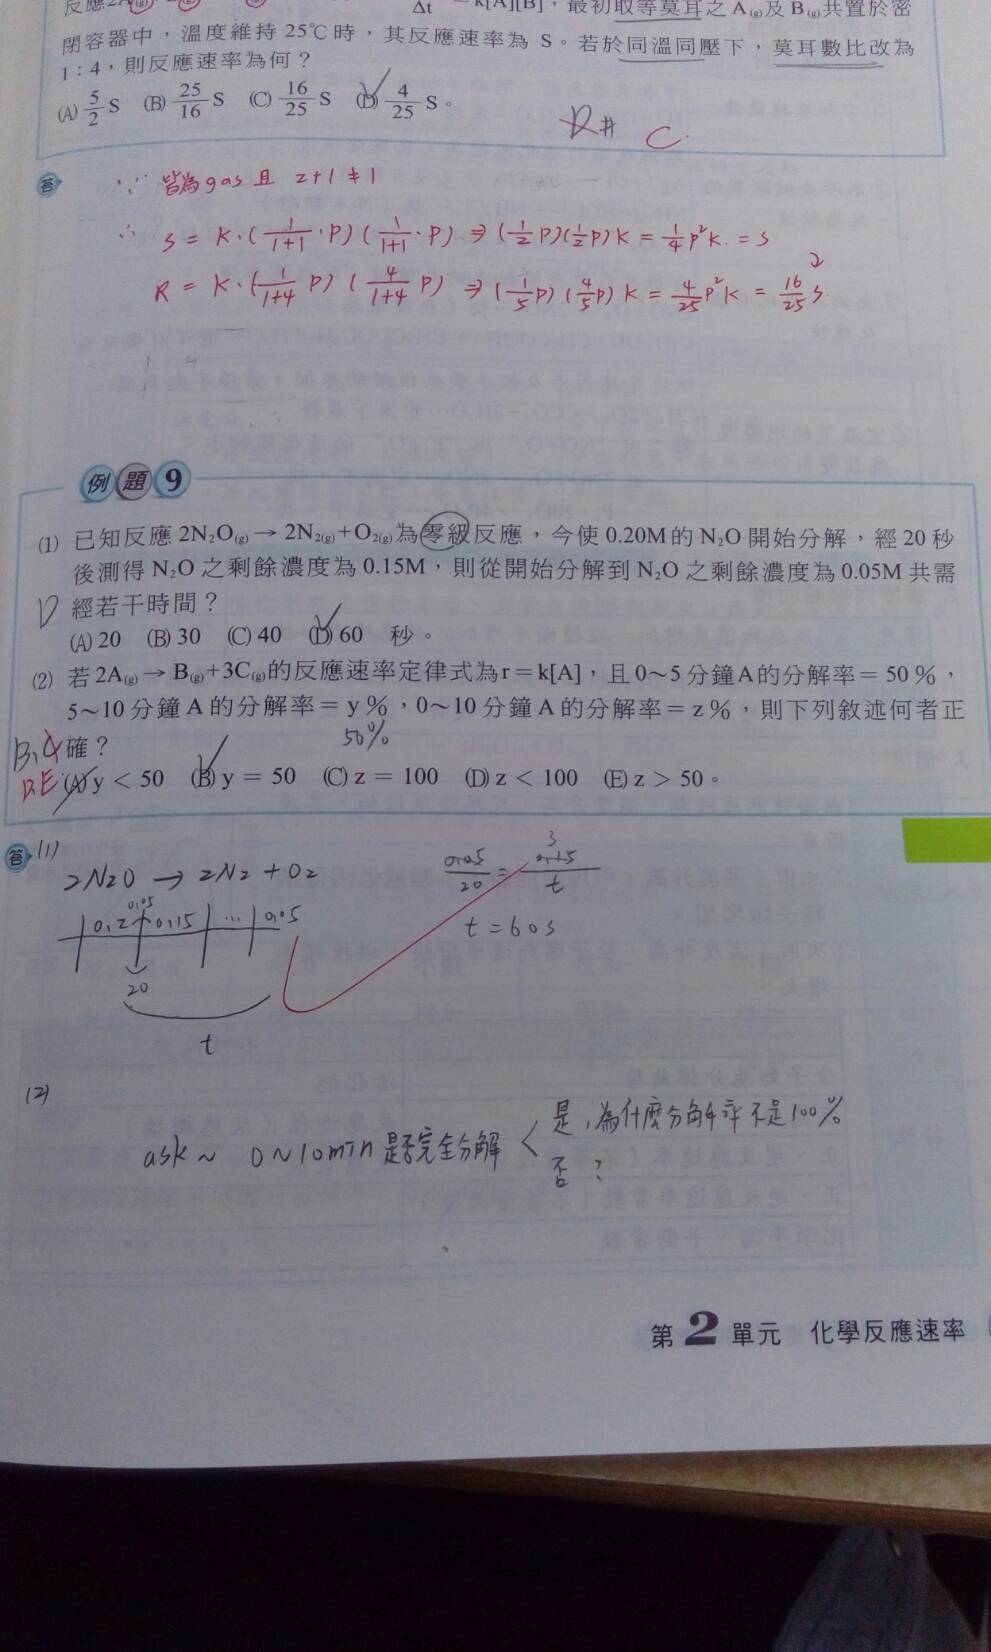 反應2A
Δt
=k[A][B],最初取等莫耳之A(g)及B(g)共置於密
閉容器中,溫度維持25℃時,其反應速率為 S。若於同溫同壓下,莫耳數比改為
1:4,則反應速率為何?
(A) 5/2 S (B) 25/16 S (C) 16/25 S (D) 4/25 S。
D# C.
答
∵ 皆為gas 且 2+1≠1
∴ S = K·(1/1+1·P)(1/1+1·P) ⇒ (1/2 P)(1/2 P)K = 1/4 P²K. = S
R = K·(1/1+4 P)(4/1+4 P) ⇒ (1/5 P)(4/5 P)K = 4/25 P²K = 16/25 S.
2
例題9
(1) 已知反應 2N₂O(g)→2N₂(g)+O₂(g)為零級反應,今使 0.20M的 N₂O 開始分解,經 20 秒
後測得 N₂O 之剩餘濃度為 0.15M,則從開始分解到 N₂O 之剩餘濃度為 0.05M 共需
D 經若干時間?
(A) 20 (B) 30 (C) 40 (D) 60 秒。
(2) 若 2A(g)→B(g)+3C(g)的反應速率定律式為 r=k[A],且 0~5 分鐘A的分解率=50%,
5~10 分鐘 A 的分解率=y%,0~10 分鐘 A 的分解率=z%,則下列敘述何者正
50%
B、 確?
D.E (A) y<50 (B) y=50 (C) z=100 (D) z<100 (E) z>50。
答 (1)
2N2O → 2N2 + O2
0.05
0.2 + 0.15 ... 0.05
20
t
0.05/20 = 0.15/t
3
t=60s
(2)
ask~ 0~10min 是否完全分解 < 是,為什麼分解率不是100%
否?
第2單元 化學反應速率